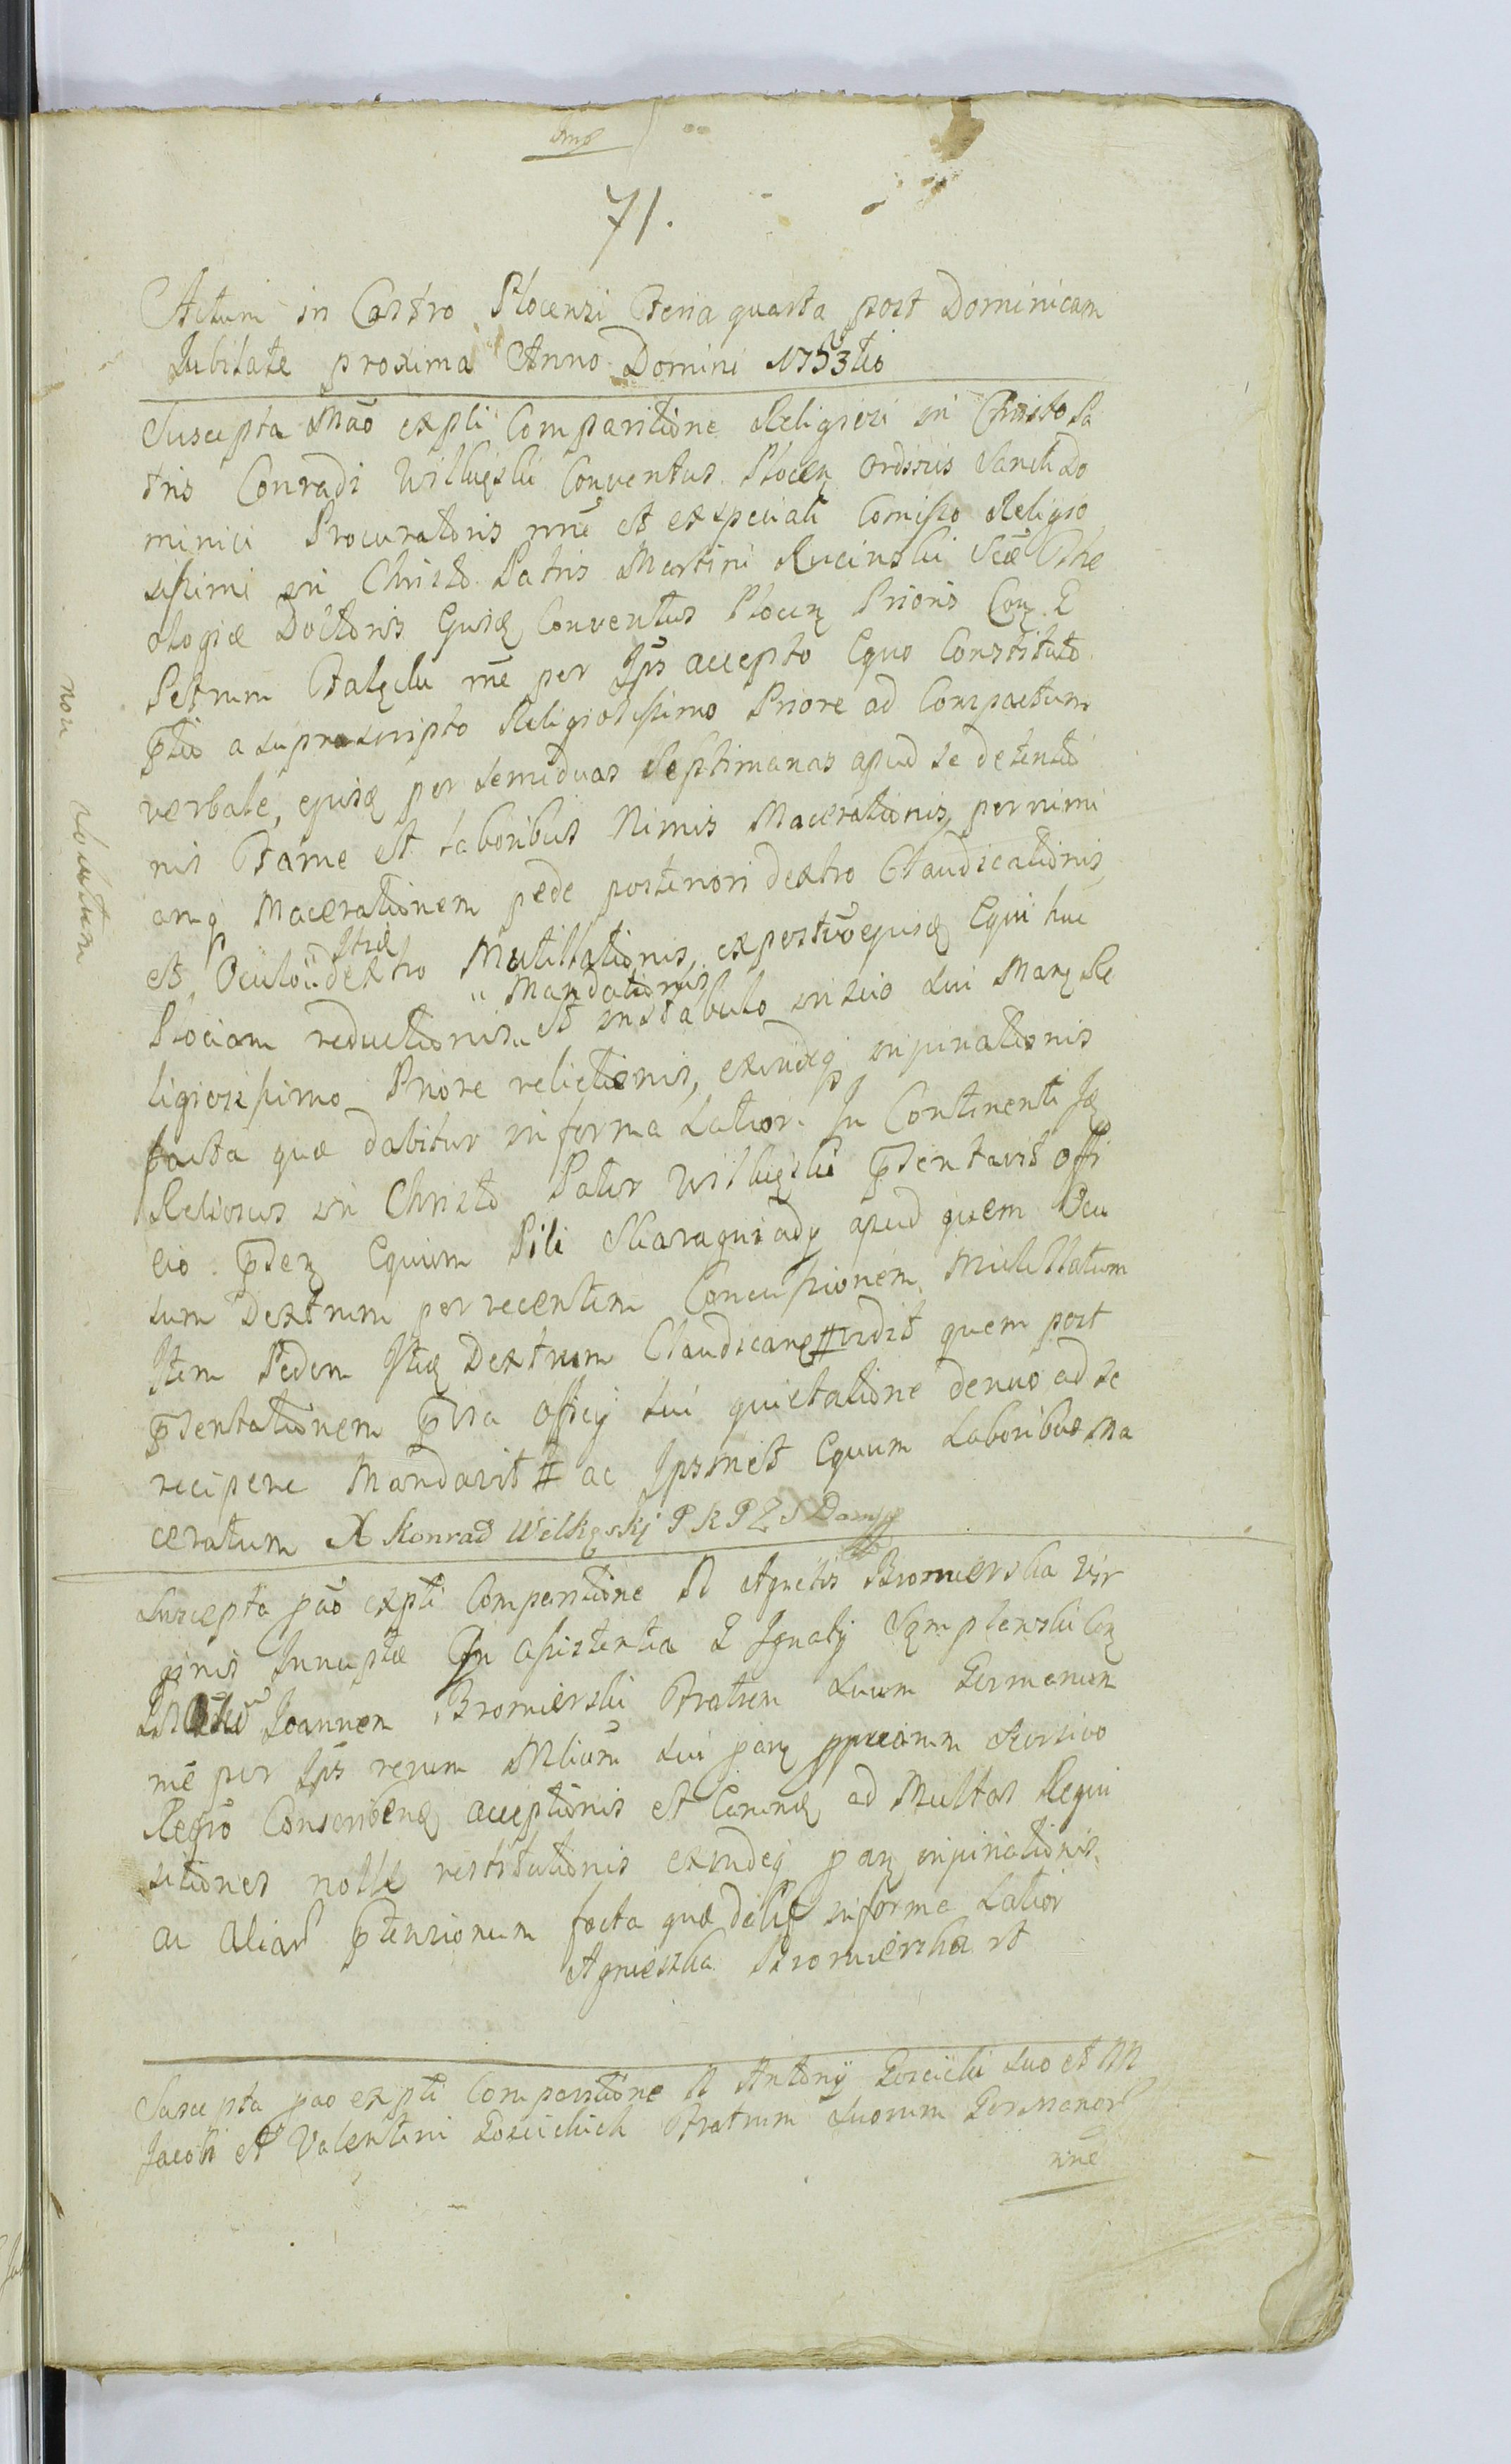 71.
Actum in Castro Plocensi Feria quarta post Dominicam
Jubilate proxima Anno Domini 1753tio
Suscepta Mão expli Comparitione Religiosi in Christo Pa
tris Conradi Wilkęski Conventus Plocen Ordinis Sancti Do
minici Procuratoris nne et ex speciali Comisso Religio
sissimi in Christo Patris Martini Rucinski Scæ The
ologiæ Doctoris Ejusq Conventus Plocen Prioris Con G
Petrum me per Ips accepto Equo Constituto
a suprascripto Religiosissimo Priore ad Compactum
verbale, ejusq per semiduas Septimanas apud se detenti
nis Fame et laboribus Nimis Macerationis, per nimi
amq Macerationem pede posteriori dextro Claudicationis,
et Oculo " dextro Mutillationis, ex post vo ejusq Equi huc
Itiq
Plociam reductionis " et in stabulo in suo sui Manq Re
" Mandationis
ligiosissimo Priore relictionis, exindeq injuriationis
facta quæ dabitur in forma Latior. In Continenti Jq
Reliosus in Christo Pater Wilkęski pstentavit Offi
cio psten Equum Pili Skarogniady apud quem Ocu
lum Dextrum per recentem Concussionem Mutillatum
Item Pedem Itiq Dextrum Claudicanq # vidit quem post
pstentationem pvia Officij sui quietatione denuo ad se
recipere Mandavit # ac Ipsmet Equum Laboribus Ma
ceratum X Konrad Wilkęski P K P Z S Domi
Suscepta pão expli Comparitione N Agnetis Bromierska Vir
ginis Innuptæ In Assistentia G Ignatij Sęmplawski Con
Joannem Bromierski Fratrem Suum Germanum
me per Ips rerum Mlium sui panq ppriarum Stersivo
Regro Conscribenq acceptionis et Earumq ad Multas Requi
sitiones nolle restitutionis exindeq panq injuriationis
ac Aliar ptensionum facta quæ dabit in forma Latior
Agnieszka Bromierska rt
Suscepta pao expli Comparitione N Antonij Gościcki Suo et M
Jacobi et Valentini Gościckich Fratrum Suorum Germanor
nne
non solutum